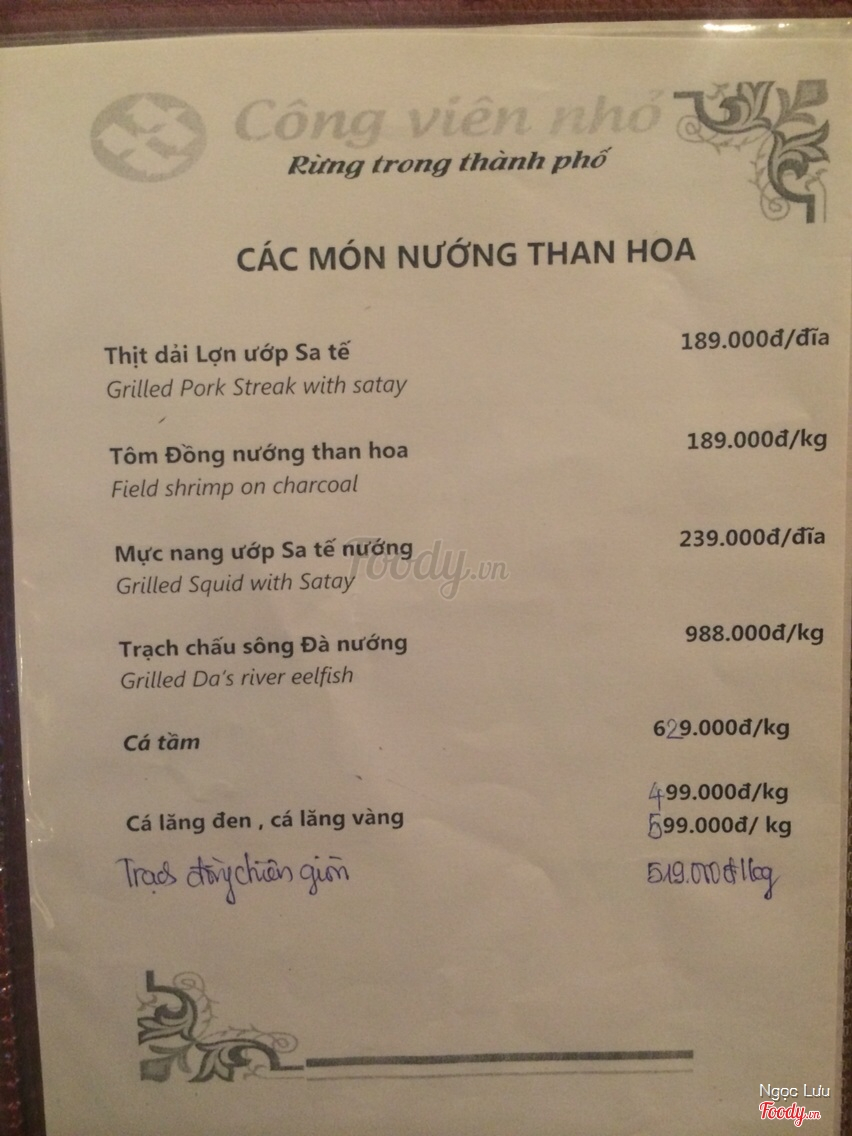 Công viên nhỏ
Rừng trong thành phố
CÁC MÓN NƯỚNG THAN HOA
Thịt dải Lợn ướp Sa tế 189.000đ/đĩa
Grilled Pork Streak with satay
Tôm Đồng nướng than hoa 189.000đ/kg
Field shrimp on charcoal
Mực nang ướp Sa tế nướng 239.000đ/đĩa
Grilled Squid with Satay
Foody.vn
Trạch chấu sông Đà nướng 988.000đ/kg
Grilled Da's river eelfish
Cá tầm 629.000đ/kg
499.000đ/kg
Cá lăng đen , cá lăng vàng 599.000đ/ kg
Trạch đồng chiên giòn 519.000đ/kg
Ngọc Lưu
Foody.vn